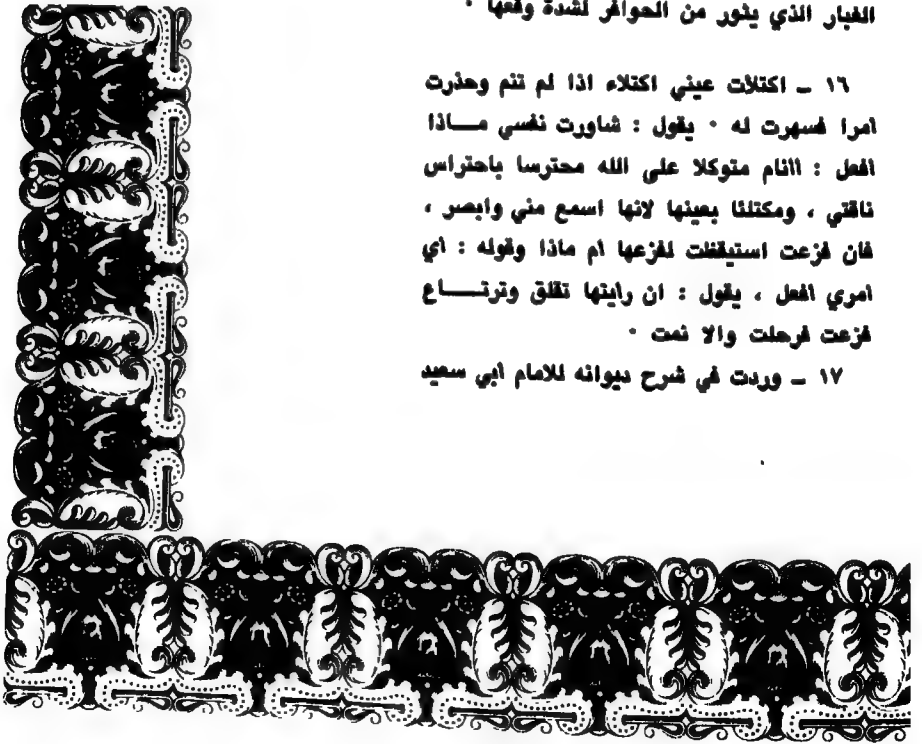 الغبار الذي يثور من الحوافر لشدة وقعها ٠
١٦ ــ اكتلأت عيني اكتلاء اذا لم تنم وحذرت
امرا فسهرت له ٠ يقول : شاورت نفسي مـــاذا
افعل : اانام متوكلا على الله محترسا باحتراس
ناقتي ، ومكتلئا بعينها لانها اسمع مني وابصر ،
فان فزعت استيقظت لفزعها ام ماذا وقوله : اي
امري افعل ، يقول : ان رايتها تقلق وترتــــاع
فزعت فرحلت والا نمت ٠
١٧ ــ وردت في شرح ديوانه للامام ابي سعيد